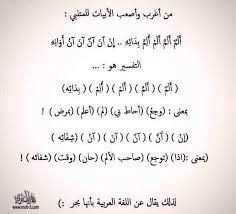 من أغرب وأصعب الأبيات للمتنبي :
أَلَمٌ أَلَمَّ أَلَمْ أُلِمَّ بِدَائِهِ .. إِنْ آنَ آنٌ آنَ آنُ أَوَانِهِ
التفسير هو : ...
( أَلَمٌ ) ( أَلَمَّ ) ( أَلَمْ ) ( أُلِمَّ ) ( بِدَائِهِ )
بمعنى : (وجعٌ) (أحاط بي) (لم) (أعلم) (بمرضِ) !
(إِنْ) ( آنَ ) ( آنٌ ) ( آنَ ) ( آنُ ) ( شِفَائِهِ )
بمعنى : (إذا) (توجع) (صاحب الألم) (حان) (وقت) (شفائه) !
لذلك يقال عن اللغة العربية بأنها بحر :)
www.mob-3.com